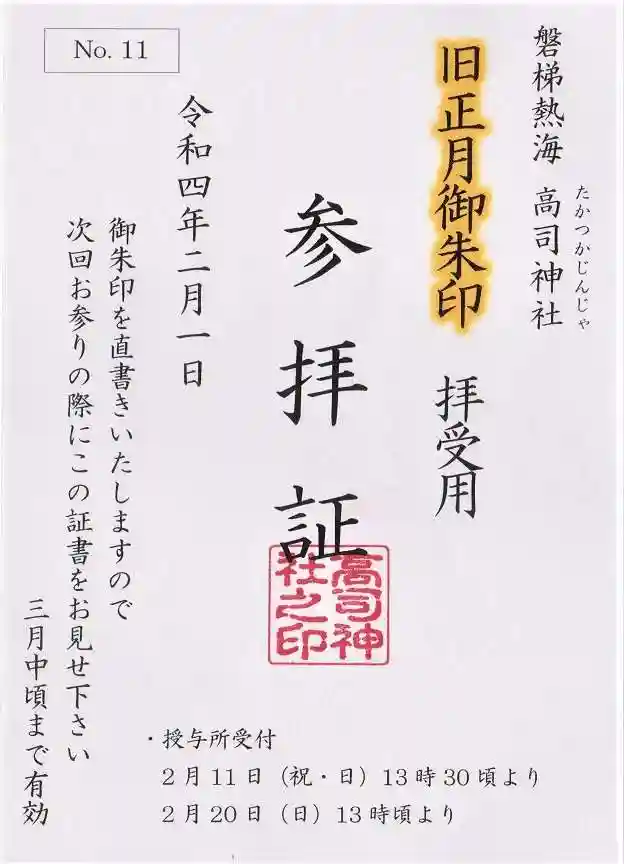 No. 11
磐梯熱海 高司神社
たかつかじんじゃ
旧正月御朱印 拝受用
参拝証
高司神社之印
令和四年二月一日
御朱印を直書きいたしますので
次回お参りの際にこの証書をお見せ下さい
三月中頃まで有効
・授与所受付
2月11日（祝・日）13時30頃より
2月20日（日）13時頃より